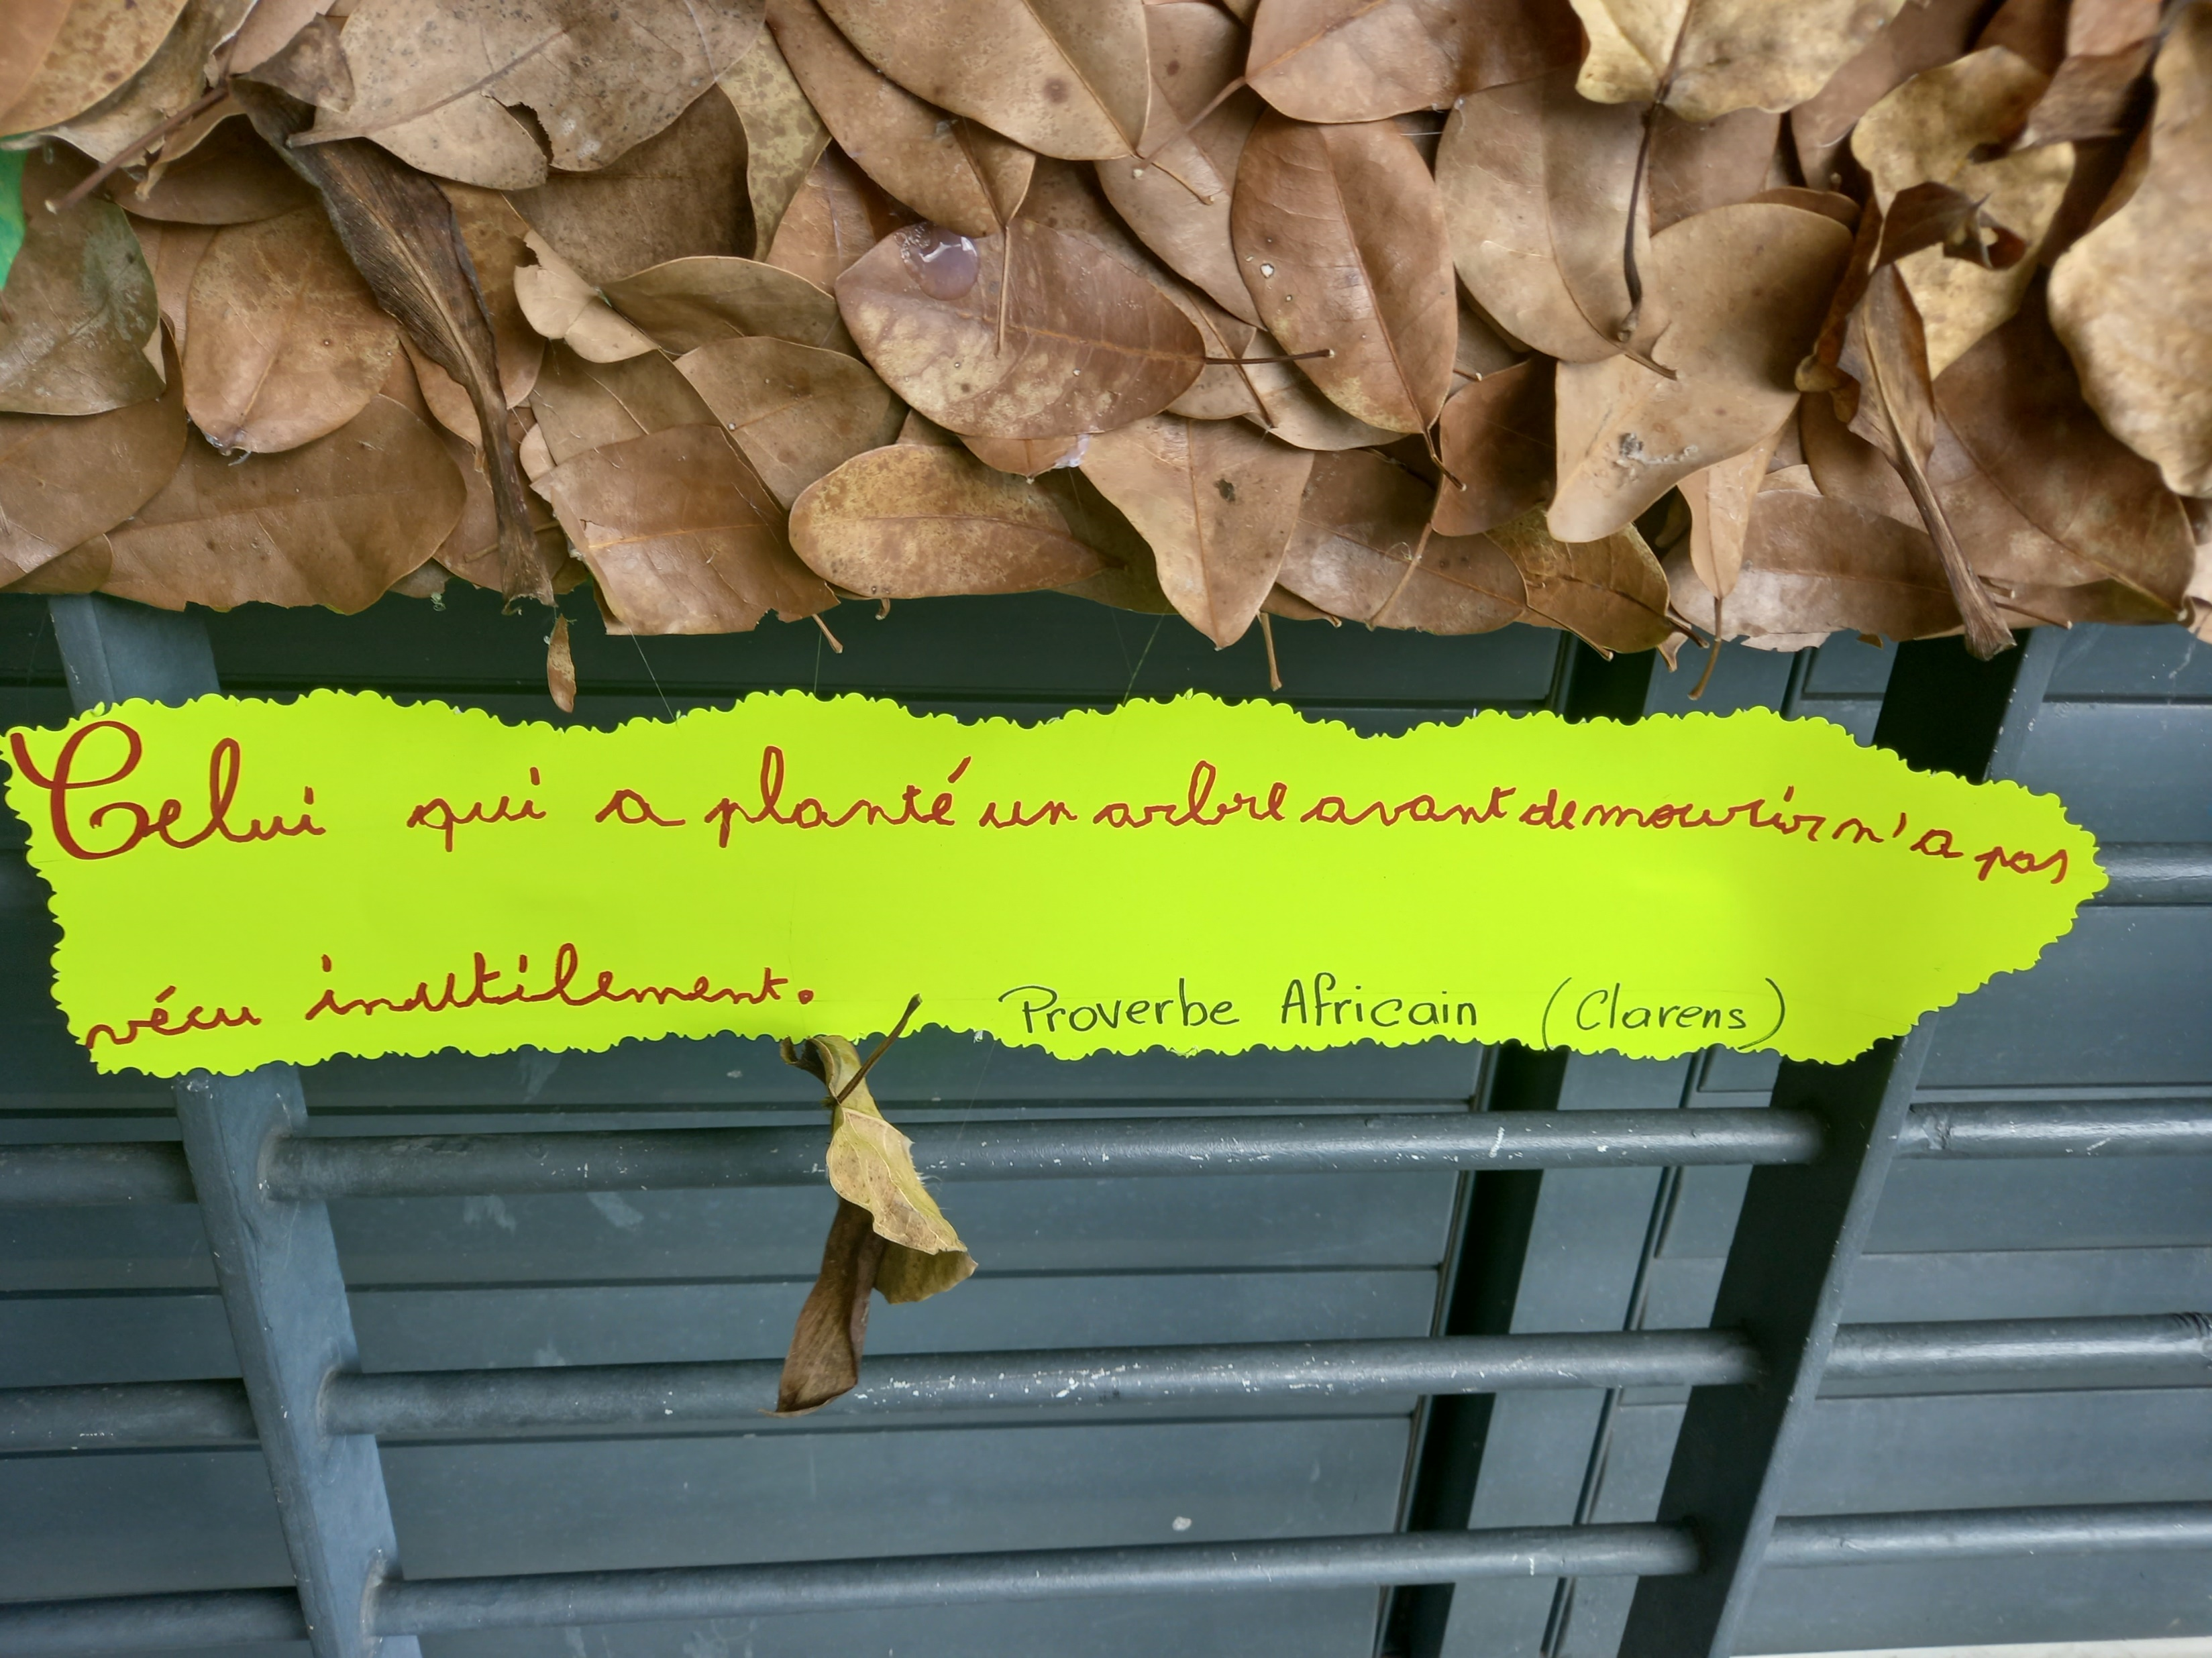 Celui qui a planté un arbre avant de mourir n'a pas
vécu inutilement. Proverbe Africain (Clarens)